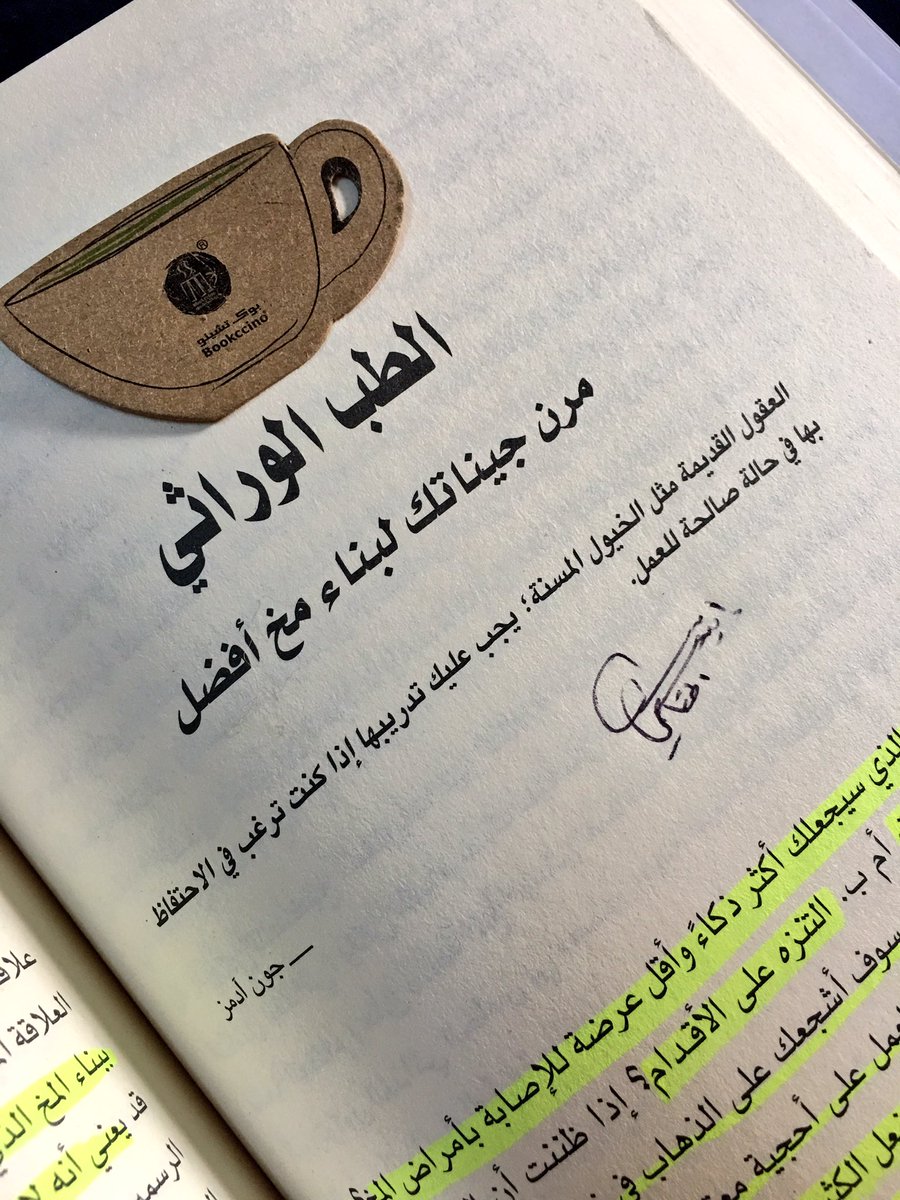 بوك تشينو
Bookccino®
الطب الوراثي
مرن جيناتك لبناء مخ أفضل
العقول القديمة مثل الخيول المسنة؛ يجب عليك تدريبها إذا كنت ترغب في الاحتفاظ
بها في حالة صالحة للعمل.
— جون آدمز
الذي سيجعلك أكثر ذكاءً وأقل عرضة للإصابة بأمراض المخ؟
أم ب. التنزه على الأقدام؟ إذا ظننت أن
سوف أشجعك على الذهاب في
على أحجية
العلاقة
ببناء المخ
قد يعني أنه